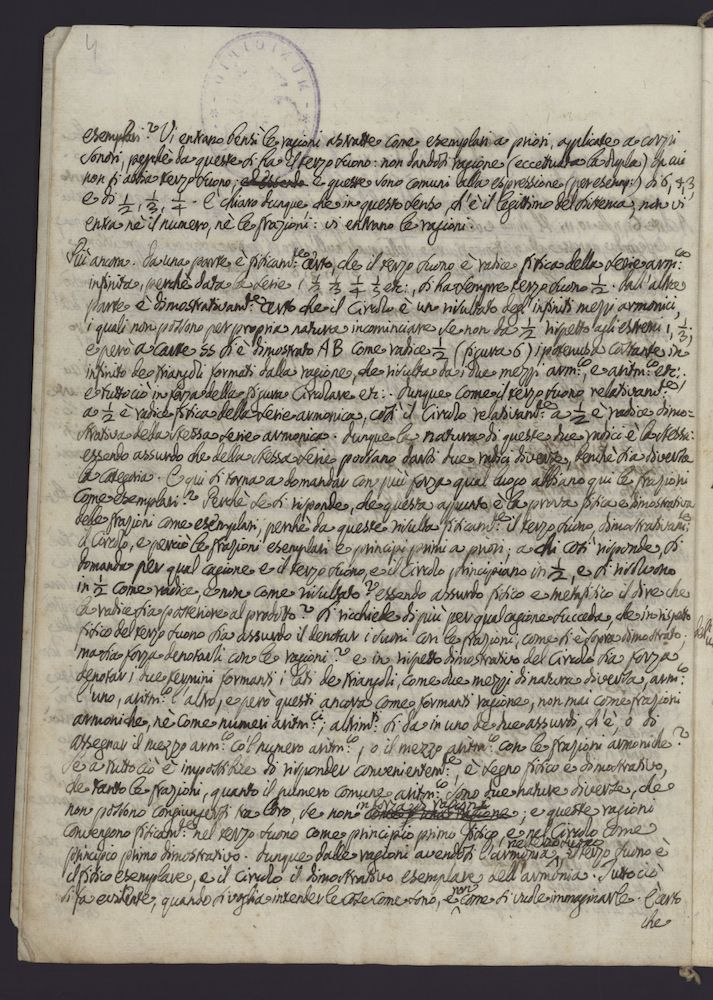 4
esemplari? Vi entrano bensì le ragioni astratte come esemplari a priori, applicate a corpi
sonori, perchè da queste si ha il terzo suono: non dandosi ragione (eccettuata la dupla) da cui
non si abbia terzo suono; e queste sono comuni alla espressione (per esempio) di 6, 4, 3,
e di 1/2, 1/3, 1/4. È chiaro dunque che in questo senso, ch'è il legittimo del sistema, non vi
entra nè il numero, nè le frazioni: vi entrano le ragioni.
Più ancora. Da una parte è fisicam:te certo, che il terzo suono è radice fisica della serie arm:ca
infinita, perchè data la serie 1/2 1/3 1/4 1/5 etc:, si ha sempre terzo suono 1/2. Dall'altra
parte è dimostrativam:te certo che il Circolo è un risultato degl'infiniti mezzi armonici,
i quali non possono per propria natura incominciare se non da 1/2 rispetto agli estremi 1, 1/3;
e però a carte 55 si è dimostrato AB come radice 1/2 (figura 6) ipotenusa costante in
infinito de' triangoli formati dalla ragione, che risulta da i due mezzi arm:ci, e aritm:ci etc:
e tutto ciò in forza della figura Circolare etc: Dunque come il terzo suono relativam:te
a 1/2 è radice fisica della serie armonica, così il Circolo relativam:te a 1/2 è radice dimo-
strativa della stessa serie armonica. Dunque la natura di queste due radici è la stessa:
essendo assurdo che della stessa serie possano darsi due radici diverse, benchè sia diversa
la categoria. E qui si torna a domandar con più forza qual luogo abbiano qui le frazioni
come esemplari? Perchè se si risponde, che questa appunto è la prova fisica e dimostrativa
delle frazioni come esemplari, perchè da queste risulta fisicam:te il terzo suono, dimostrativam:te
il Circolo, e perciò le frazioni esemplari e principj primi a priori; a chi così risponde, si
domanda per qual cagione e il terzo suono, e il Circolo principiano in 1/2, e si risolvono
in 1/2 come radice, e non come risultato? essendo assurdo fisico e metafisico il dire che
la radice sia posteriore al prodotto? Si richiede di più per qual cagione succeda, che in rispetto
fisico del terzo suono sia assurdo il denotar i suoni con le frazioni, come si è sopra dimostrato.
ma sia forza denotarli con le ragioni? e in rispetto dimostrativo del Circolo sia forza
denotar i due termini formanti i lati de' triangoli, come due mezzi di natura diversa, arm:co
l'uno, aritm:co l'altro, e però questi ancora come formanti ragione, non mai come frazioni
armoniche, nè come numeri aritm:ci; altrim:ti si dà in uno de' due assurdi, ch'è, o di
assegnar il mezzo arm:co co'l numero aritm:co, o il mezzo aritm:co con le frazioni armoniche?
Se a tutto ciò è impossibile di risponder convenientem:te, è segno fisico e dimostrativo,
che tanto le frazioni, quanto il numero comune aritm:co sono due nature diverse, che
non possono congiungersi tra loro, se non in forza di ragione; e queste ragioni
convengono fisicam:te nel terzo suono come principio primo fisico, e nel Circolo come
principio primo dimostrativo. Dunque dalle ragioni avendosi l'armonia, il terzo suono è
il fisico esemplare, e il Circolo il dimostrativo esemplare dell'armonia. Tutto ciò
si fa evidente, quando si voglia intender le cose come sono, e non come si vuole immaginarle. È certo
che